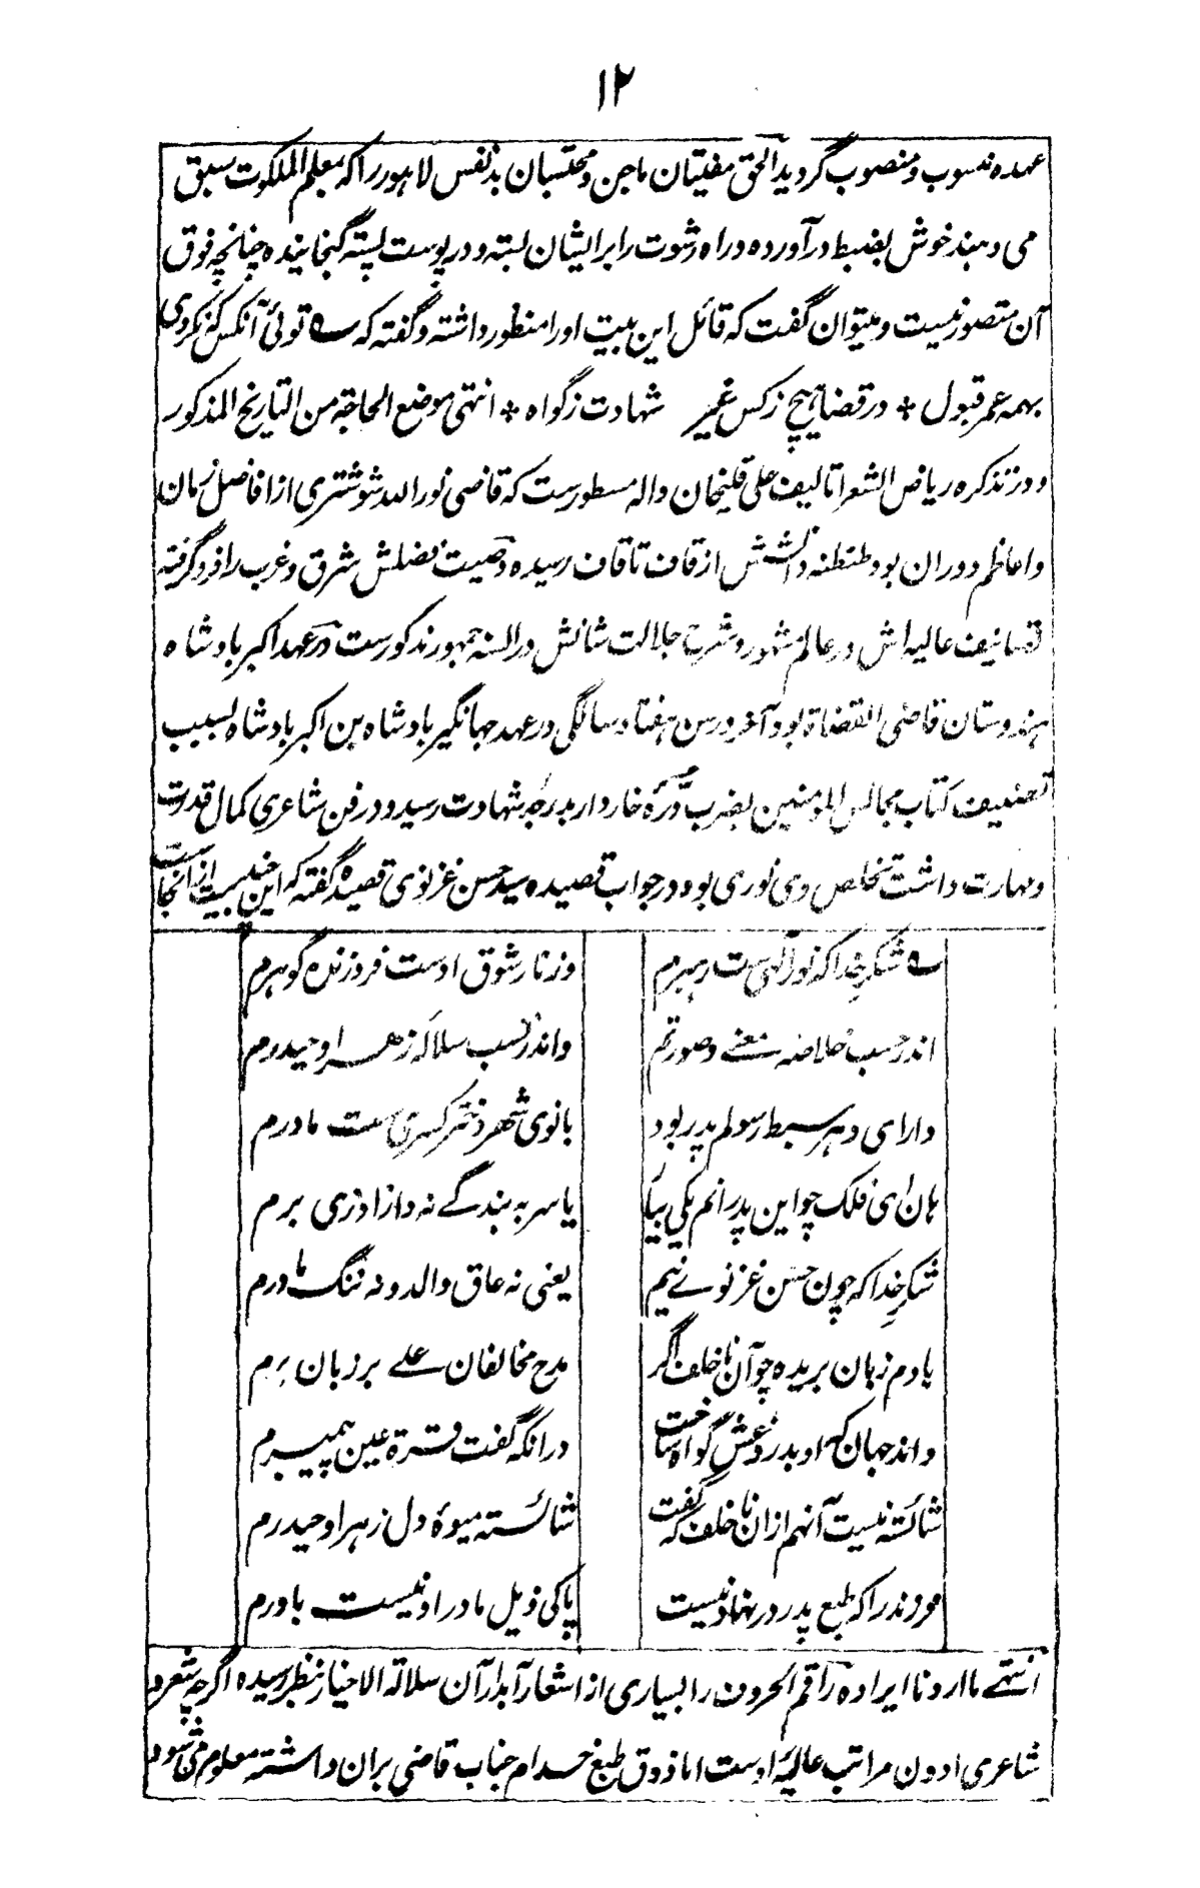 ۱۲
عهده منسوب و منصوب گردید الحق مفتیان ماجن و محتسبان بدنفس لاهور را که بمعلم الملکوت سبق
می دهند خوش بضبط درآورده و راه رشوت را بر ایشان بسته و در پوست پسته گنجانیده چنانچه فوق
آن متصور نیست و میتوان گفت که قائل این بیت او را منظور داشته و گفته که ؎ توئی آنکس که نکردی
بهمه عمر قبول * در قضا هیچ زکس غیر شهادت ز گواه * انتهی موضع الحاجة من التاریخ المذکور
و در تذکره ریاض الشعرا تالیف علی قلیخان واله مسطورست که قاضی نور الله شوشتری از افاضل زمان
و اعاظم دوران بود طنطنه دانشش از قاف تا قاف رسیده و صیت فضلش شرق و غرب را فرو گرفته
تصانیف عالیه اش در عالم مشهور و شرح جلالت شانش در السنه جمهور مذکورست در عهد اکبر بادشاه
هندوستان قاضی القضاة بود آخر در سن هفتاد سالگی در عهد جهانگیر بادشاه بن اکبر بادشاه بسبب
تصنیف کتاب مجالس المومنین بضرب دره خاردار بدرجه شهادت رسید و در فن شاعری کمال قدرت
و مهارت داشت تخلص وی نوری بود در جواب قصیده سید حسن غزنوی قصیده گفته که این چند بیت از آنجاست
؎ شکر خدا که نور الهی ست رهبرم وز نار شوق اوست فروزنده گوهرم
اندر حسب خلاصه معنے و صورتم واندر نسب سلاله زهرا و حیدرم
دارای دهر سبط رسولم پدر بود بانوی شهر دختر کسری ست مادرم
هان ای فلک چو این پدرانم یکی بیا یا سر به بندگے نه و ازاد زی برم
شکر خدا که چون حسن غزنوے نیم یعنی نه عاق والد و نه ننگ مادرم
بادم زبان بریده چو آن ناخلف اگر مدح مخالفان علے بر زبان برم
داند جهان که او بدروغش گواه ساخت درانکه گفت قرة عین پیمبرم
شائسته نیست آنهم ازان ناخلف که گفت شائسته میوۀ دل زهرا و حیدرم
فرزند را که طبع پدر در نهاد نیست پاکی ذیل مادر او نیست باورم
انتهے ما اردنا ایراده راقم الحروف را بسیاری از اشعار آبدار آن سلالة الاخیار بنظر رسیده اگر چه شعر و
شاعری ادون مراتب عالیۀ اوست اما ذوق طبع خدام جناب قاضی بران داشته معلوم می شود